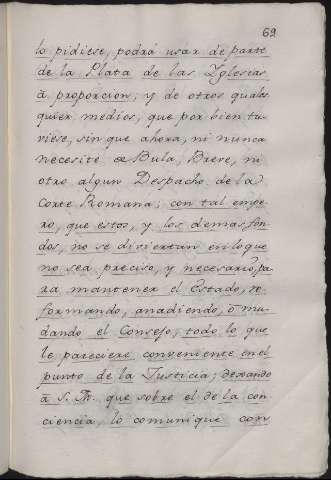 69
lo pidiese, podrá usar de parte
de la Plata de las Yglesias
a proporcion; y de otros quales
quier medios, que por bien tu
viese, sin que ahora, ni nunca
necesite de Bula, Breve, ni
otro algun Despacho de la
Corte Romana; con tal empe
ro, que estos, y los demas fon
dos, no se diviertan en loque
no sea preciso, y necesario, pa
ra mantener el Estado, re
formando, anadiendo, ò mu
dando el Consejo, todo lo que
le pareciere conveniente en el
punto de la Justicia; dexando
à S. M. que sobre el de la con
ciencia, lo comunique con